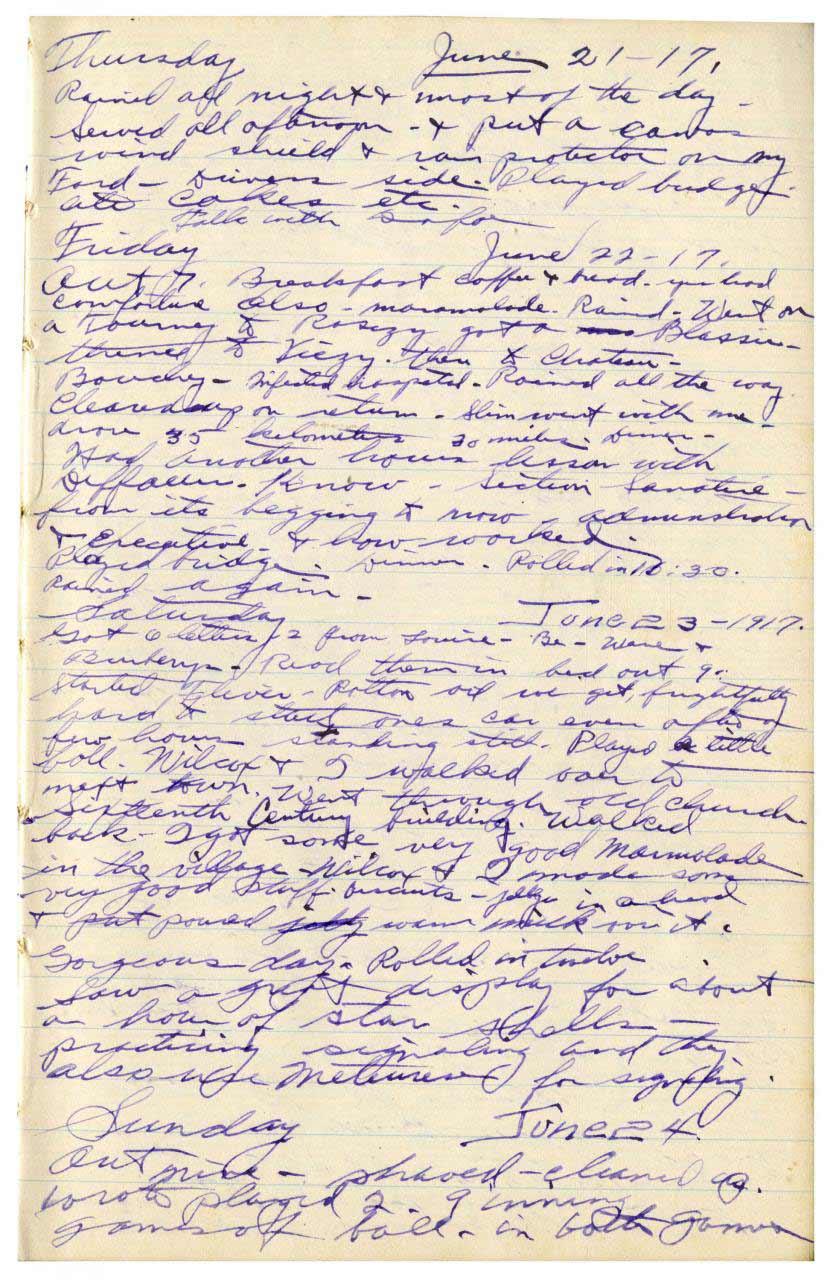 Thursday June 21-17.
Rained all night & most of the day -
Sewed all afternoon - & put a canvas
wind shield & rain protector on my
Ford - Drivers side. Played bridge.
ate cakes etc.
Talk with
Friday June 22-17.
Out 7. Breakfast coffee & bread. you had
comfiture also - maramolade. Rained - Went on
a Tourney to got a
thence to then to Chateau -
- Infected hospital. Rained all the way
Cleared up on return. Slim went with me -
drove 35 kilometers 20 miles. Dinner -
Had another hours lesson with
. Know - Section Sanataire -
from its begging to now, adminstration
& Executive & how worked.
Played bridge. Dinner. Rolled in 10:30.
Rained again -
Saturday June 23-1917.
Got 6 letters, 2 from Louise - &
. Read them in bed out 9:
Started Fliver - Rotton oil we get, frightfully
hard to start ones car even after a
few hours standing still. Played a little
ball. Wilcox & I walked over to
next town. Went through old church
Sixteenth Century building. Walked
back - I got some very good Marmolade
in the village Wilcox & I made some
very good stuff. Biscuits - in a bowl
& put poured jelly warm milk over it.
Gorgeous day. Rolled in twelve
Saw a great display for about
a hour of star shells -
practicing signaling and they
also use for signaling.
Sunday June 24.
Out nine - shaved - cleaned up.
wrote played 2 - 9 inning
games of ball - in both games